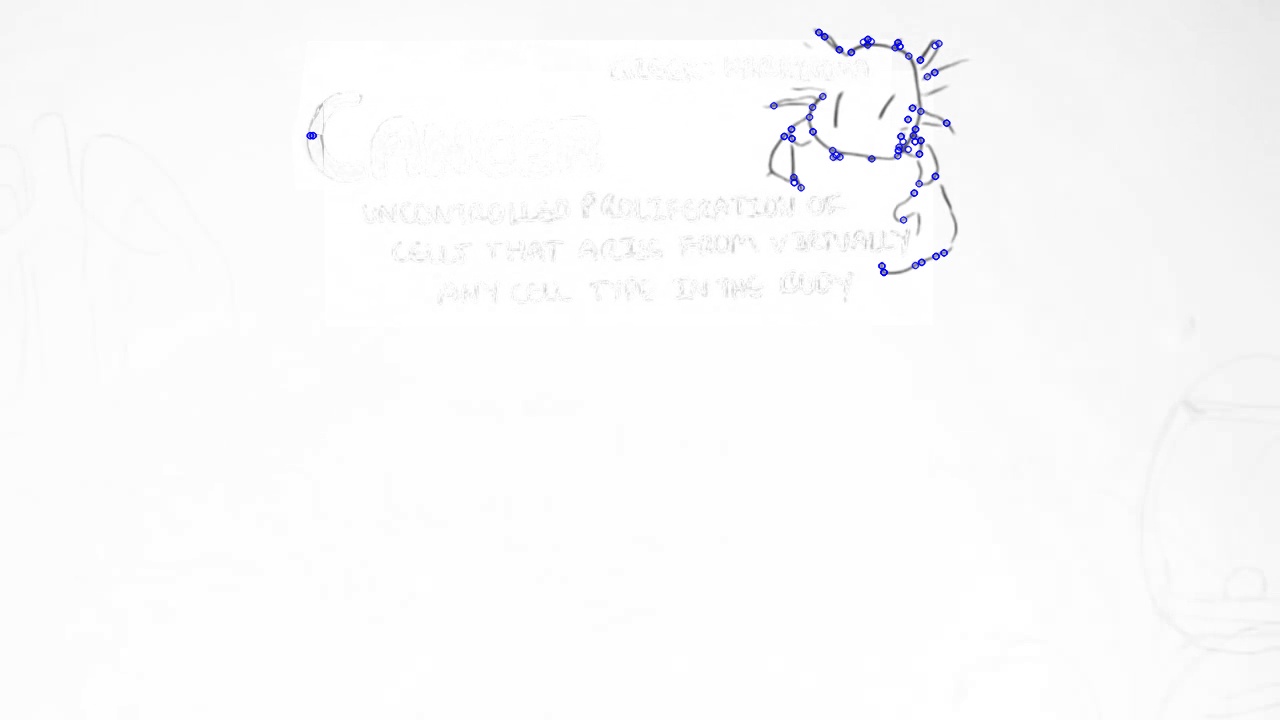 CANCER
UNCONTROLLED PROLIFERATION OF
CELLS THAT ARISE FROM VIRTUALLY
ANY CELL TYPE IN THE BODY